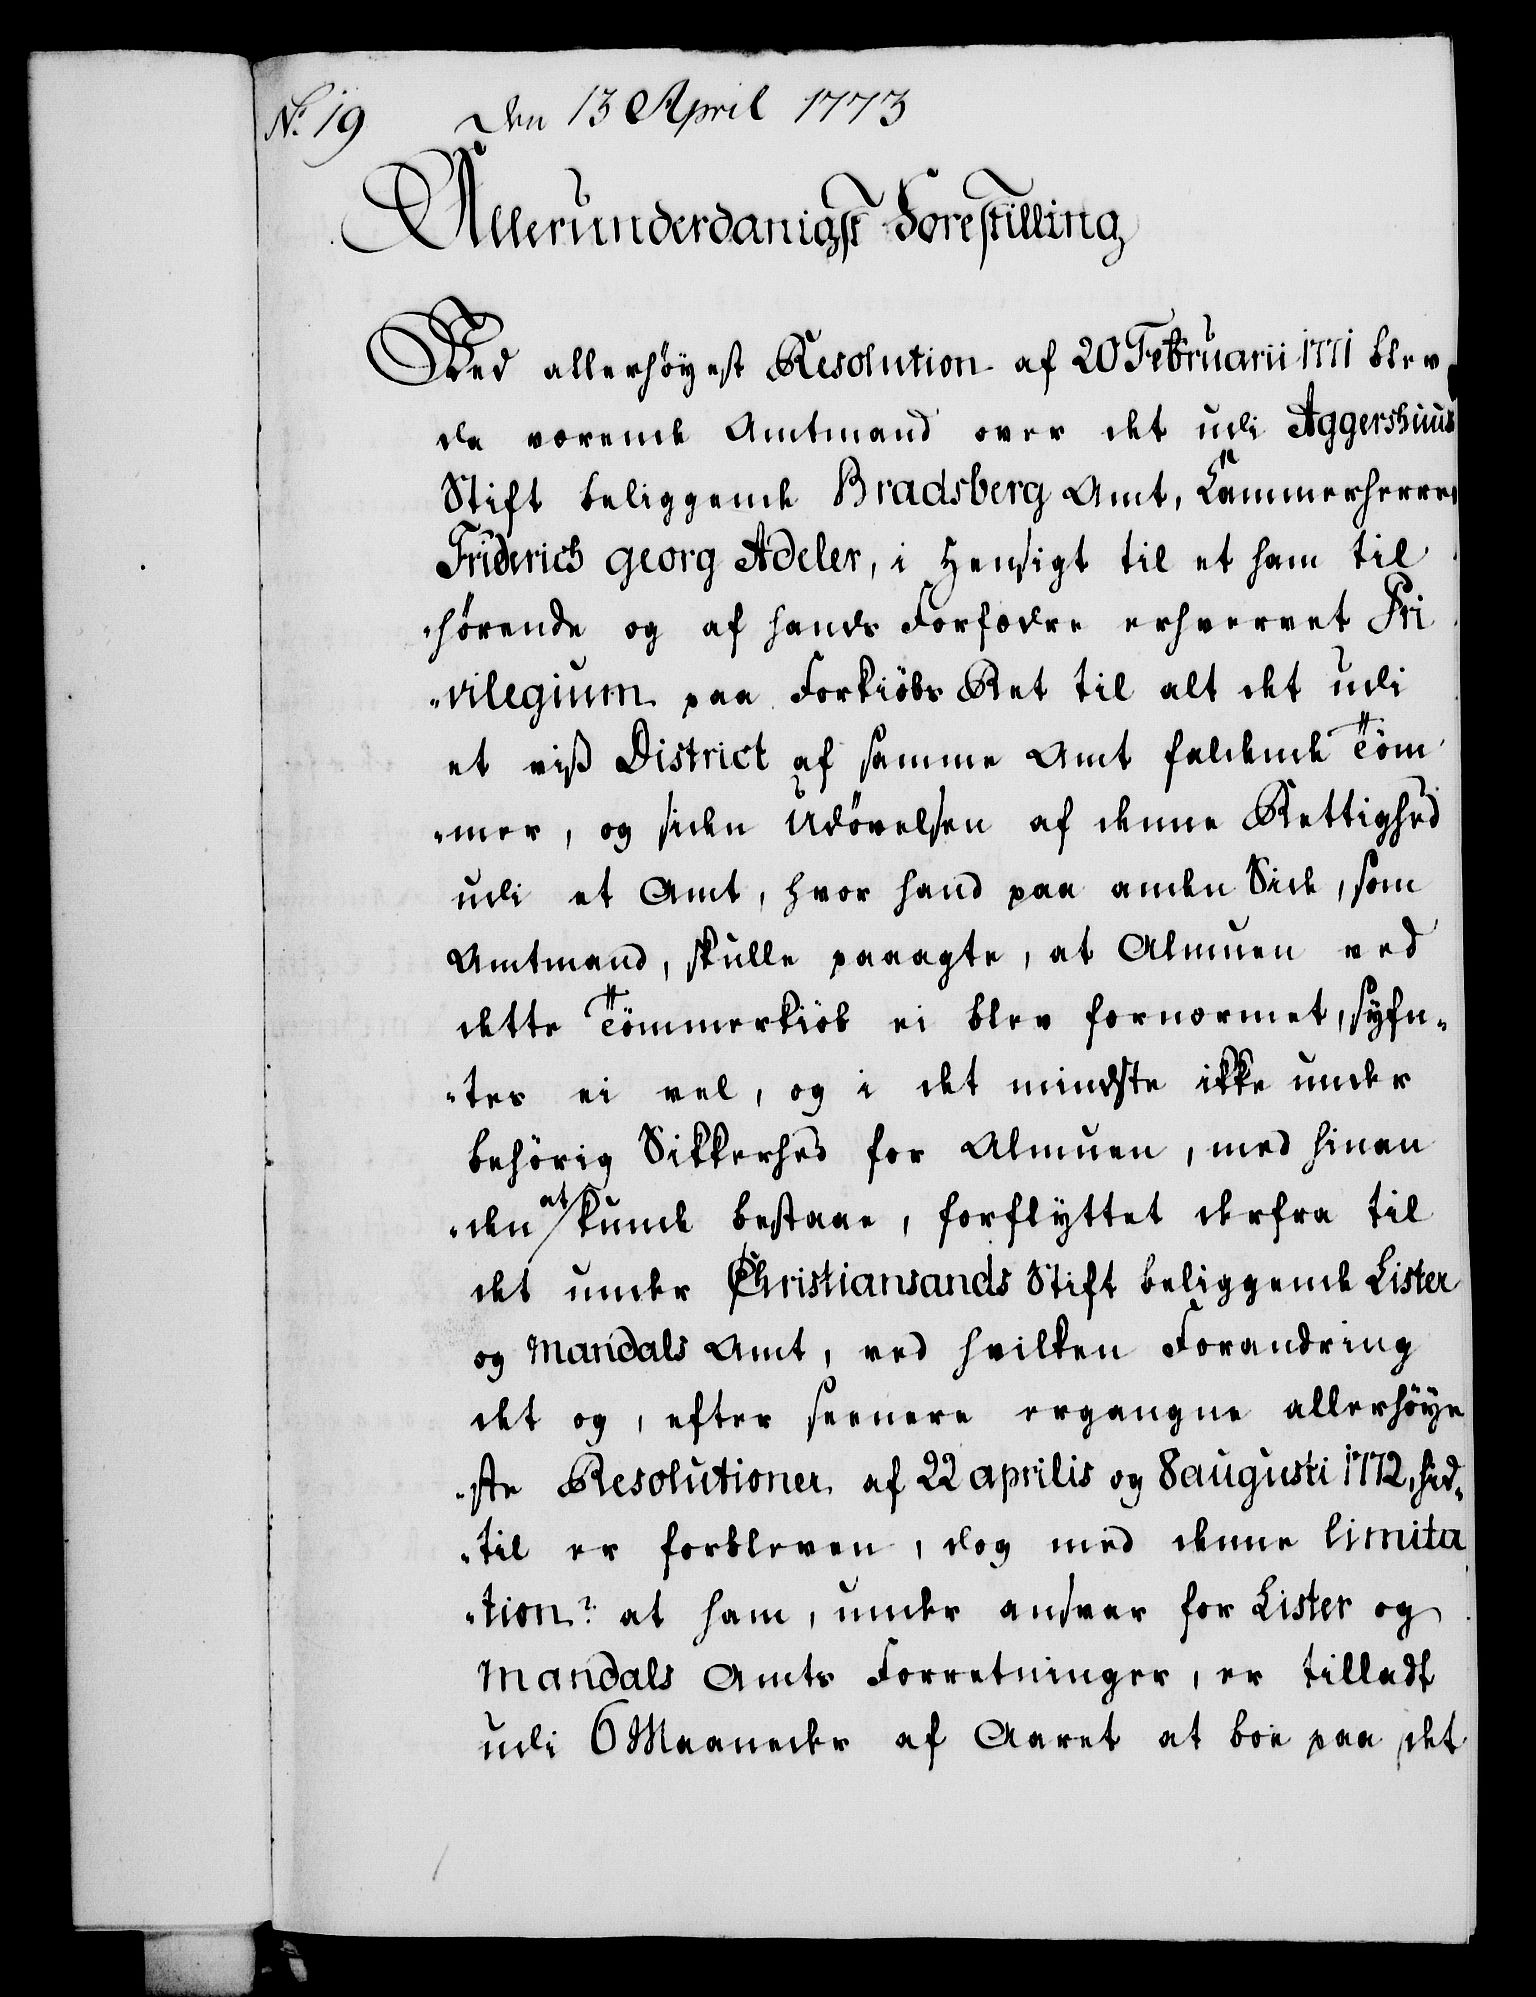 No 19 Den 13 April 1773
Allerunderdanigst Forestilling
Ved allerhöyest Resolution af 20 Februarii 1771 blev
da værende Amtmand over det udi Aggershuus
Stift beliggende Bradsberg Amt, Cammerherre
Friderich Georg Adeler, i Hensigt til et ham til
„hørende og af hands Forfædre erhvervet Pri
„vilegium paa Forkiöbs Ret til alt det udi
et viß District af samme Amt faldende Töm
„mer, og siden Udövelsen af denne Rettighed
udi et Amt, hvor hand paa anden Side, som
Amtmand, skulle paaagte, at Almuen ved
dette Tömmerkiöb ei blev fornærmet, syfn„
„tes ei vel, og i det mindste ikke under
behörig Sikkerhed for Almuen, med hinan
„den at kunde bestaae, forflyttet derfra til
det under Christiansands Stift beliggende Lister
og Mandals Amt, ved hvilken Forandring
det og, efter seenere ergangne allerhöye
„ste Resolutioner af 22 aprilis og 8 augusti 1772, hid„
„til er forbleven, dog med denne limita
„tion: at ham, under ansvar for Lister og
Mandals Amts Forretninger, er tilladt
udi 6 Maaneder af Aaret at boe paa det